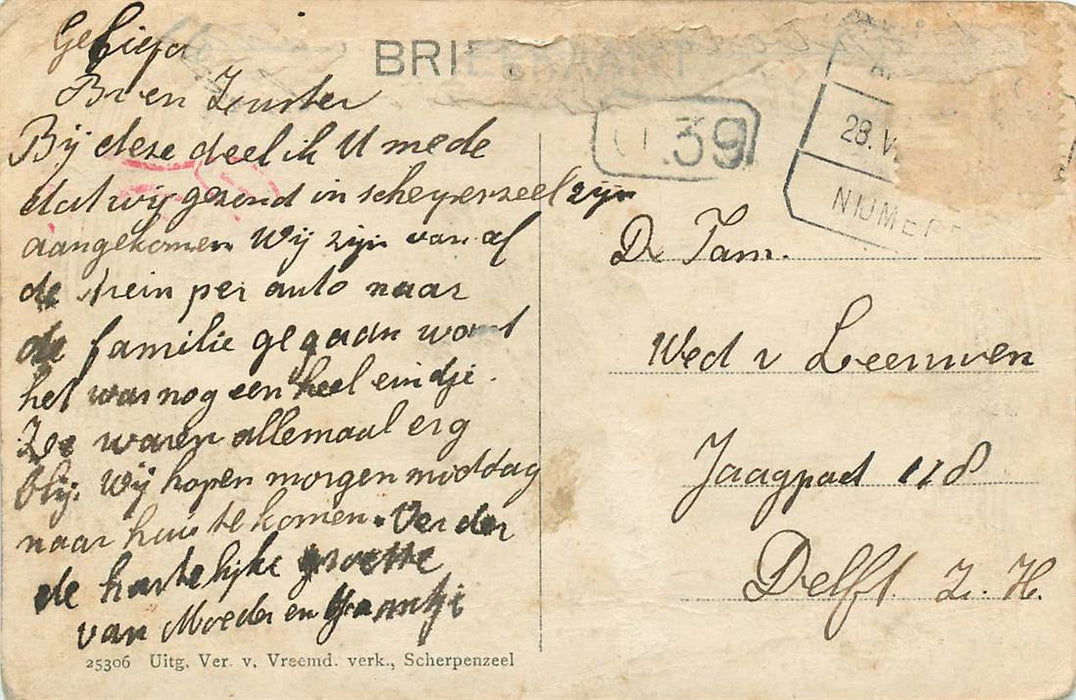 BRIEFKAART
Geliefde
Br en Zuster
Bij deze deel ik U mede
dat wij gezond in scherpenzeel zijn
aangekomen Wij zijn van af
de trein per auto naar
de familie gegaan want
het was nog een heel eindje.
Ze waren allemaal erg
blij. Wij hopen morgen middag
naar huis te komen. Verder
de hartelijke groette
van Moeder en
25306 Uitg. Ver. v. Vreemd. verk., Scherpenzeel
39
28. V
NIJMEGEN
De Fam.
Wed v Leeuwen
Jaagpad 118
Delft Z. H.